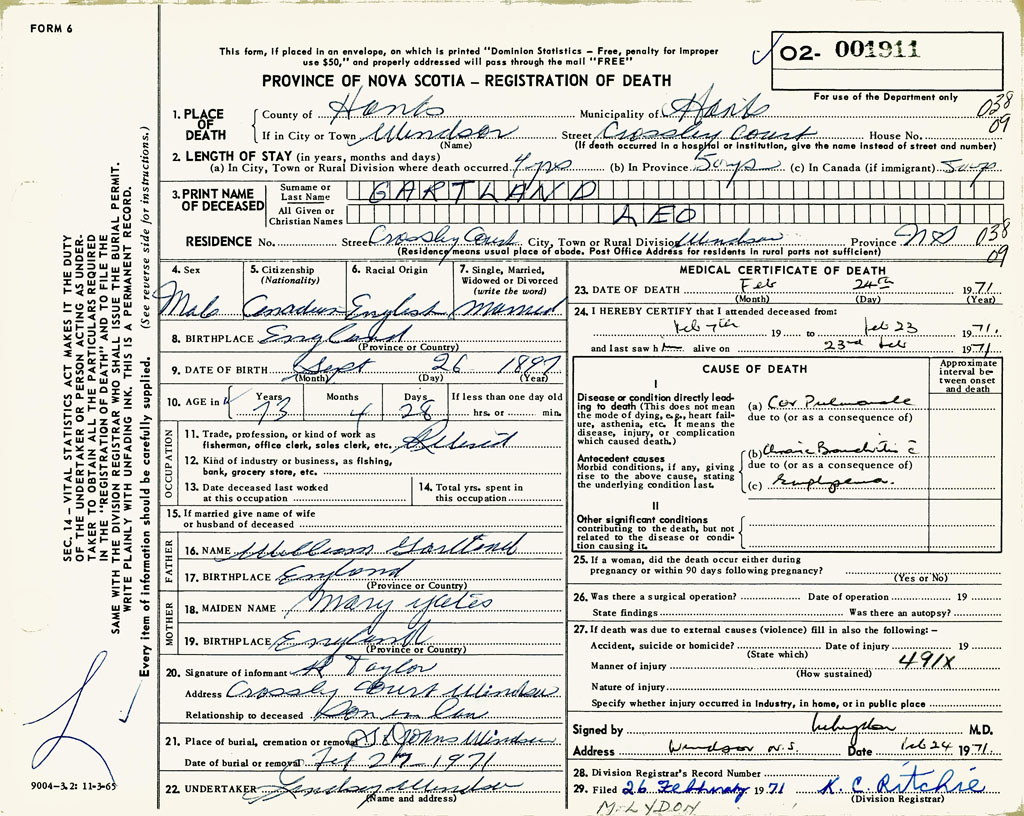 FORM 6
This form, if placed in an envelope, on which is printed "Dominion Statistics – Free, penalty for improper
use $50," and properly addressed will pass through the mail "FREE"
PROVINCE OF NOVA SCOTIA – REGISTRATION OF DEATH
02- 001911
For use of the Department only
038
09
1. PLACE OF DEATH
County of Hants Municipality of Hants
If in City or Town Windsor Street Crossley Court House No.
(Name) (If death occurred in a hospital or institution, give the name instead of street and number)
2. LENGTH OF STAY (in years, months and days)
(a) In City, Town or Rural Division where death occurred 4 yrs (b) In Province 5 yrs (c) In Canada (if immigrant) 5 yrs
3. PRINT NAME OF DECEASED
Surname or Last Name GARTLAND
All Given or Christian Names LEO
RESIDENCE No. Street Crossley Court City, Town or Rural Division Windsor Province NS
038
09
(Residence means usual place of abode. Post Office Address for residents in rural parts not sufficient)
SEC. 14 – VITAL STATISTICS ACT MAKES IT THE DUTY
OF THE UNDERTAKER OR PERSON ACTING AS UNDER-
TAKER TO OBTAIN ALL THE PARTICULARS REQUIRED
IN THE "REGISTRATION OF DEATH" AND TO FILE THE
SAME WITH THE DIVISION REGISTRAR WHO SHALL ISSUE THE BURIAL PERMIT.
WRITE PLAINLY WITH UNFADING INK. THIS IS A PERMANENT RECORD.
Every item of information should be carefully supplied. (See reverse side for instructions.)
4. Sex
Male
5. Citizenship
(Nationality)
Canadian
6. Racial Origin
English
7. Single, Married,
Widowed or Divorced
(write the word)
Married
8. BIRTHPLACE England
(Province or Country)
9. DATE OF BIRTH Sept 26 1897
(Month) (Day) (Year)
10. AGE in Years Months Days If less than one day old
73 4 28 hrs. or min.
OCCUPATION
11. Trade, profession, or kind of work as
fisherman, office clerk, sales clerk, etc. Retired
12. Kind of industry or business, as fishing,
bank, grocery store, etc.
13. Date deceased last worked
at this occupation
14. Total yrs. spent in
this occupation
15. If married give name of wife
or husband of deceased
FATHER
16. NAME William Gartland
17. BIRTHPLACE England
(Province or Country)
MOTHER
18. MAIDEN NAME Mary Yates
19. BIRTHPLACE England
(Province or Country)
20. Signature of informant R Taylor
Address Crossley Court Windsor
Relationship to deceased Son in law
21. Place of burial, cremation or removal St Johns Windsor
Date of burial or removal Feb 27 1971
22. UNDERTAKER Lindsay Windsor
(Name and address)
9004-3.2: 11-3-65
MEDICAL CERTIFICATE OF DEATH
23. DATE OF DEATH Feb 24th 1971
(Month) (Day) (Year)
24. I HEREBY CERTIFY that I attended deceased from:
Feb 7th 19 to Feb 23 1971.
and last saw h alive on 23rd Feb 1971
CAUSE OF DEATH
Approximate
interval be-
tween onset
and death
I
Disease or condition directly lead-
ing to death (This does not mean
the mode of dying, e.g., heart failure,
asthenia, etc. It means the
disease, injury, or complication
which caused death.)
(a) Cor Pulmonale
due to (or as a consequence of)
Antecedent causes
Morbid conditions, if any, giving
rise to the above cause, stating
the underlying condition last.
(b) Chronic Bronchitis c̄
due to (or as a consequence of)
(c) Emphysema.
II
Other significant conditions
contributing to the death, but not
related to the disease or condi-
tion causing it.
25. If a woman, did the death occur either during
pregnancy or within 90 days following pregnancy?
(Yes or No)
26. Was there a surgical operation? Date of operation 19
State findings Was there an autopsy?
27. If death was due to external causes (violence) fill in also the following: –
Accident, suicide or homicide? Date of injury 19
(State which)
Manner of injury 491X
(How sustained)
Nature of injury
Specify whether injury occurred in industry, in home, or in public place
Signed by M.D.
Address Windsor N.S. Date Feb 24 1971
28. Division Registrar's Record Number
29. Filed 26 February 1971 K. C. Ritchie
(Division Registrar)
M. LYDON